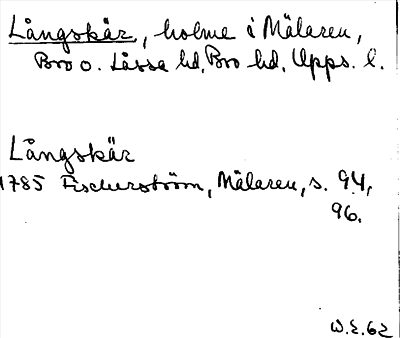 Långskär, holme i Mälaren,
Bro o. Låssa hd, Bro hd, Upps. l.
Långskär
1785 Fischerström, Mälaren, s. 94,
96.
W.E. 62